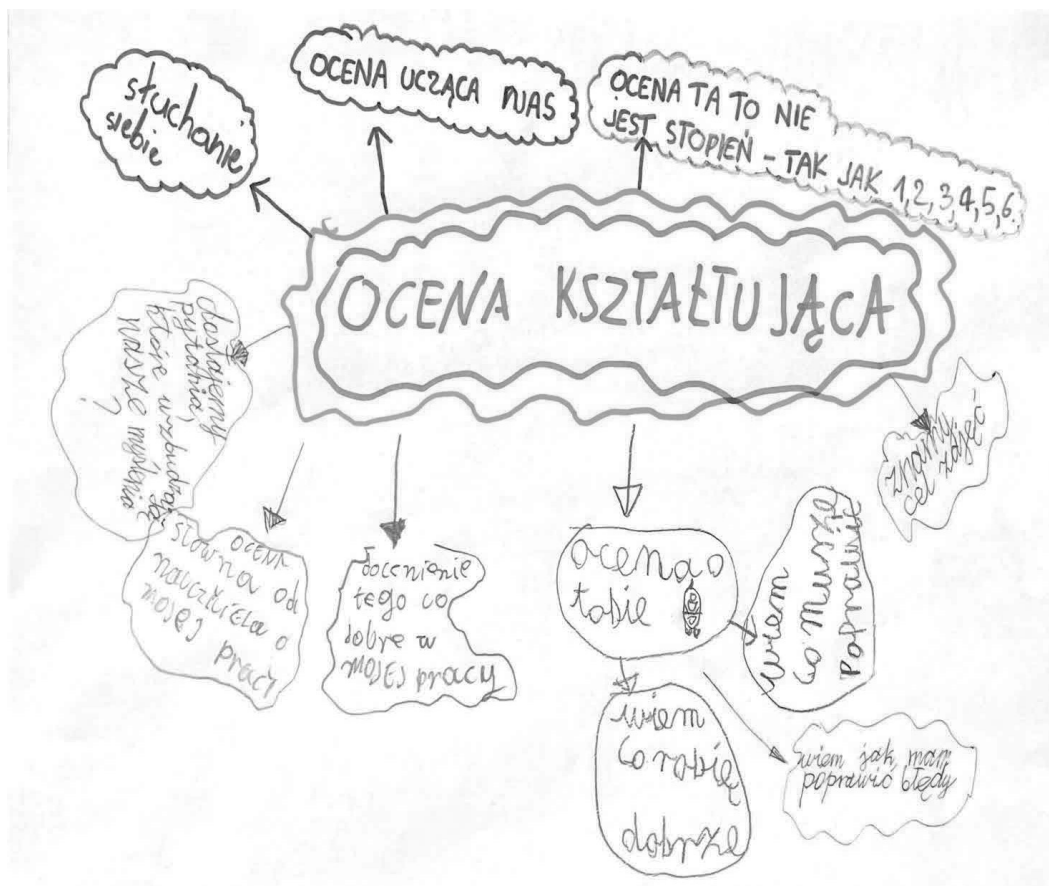 słuchanie
siebie
OCENA UCZĄCA NAS
OCENA TA TO NIE
JEST STOPIEŃ - TAK JAK 1,2,3,4,5,6.
OCENA KSZTAŁTUJĄCA
dostajemy
pytania,
które wzbudzają
nasze myślenia
?
znamy
cel zdjęć
OCENA
słowna od
nauczyciela o
mojej pracy
docenienie
tego co
dobre w
MOJEJ pracy
ocena o
tobie
wiem
co muszę
poprawić
wiem
co robię
dobrze
wiem jak mam
poprawić błędy